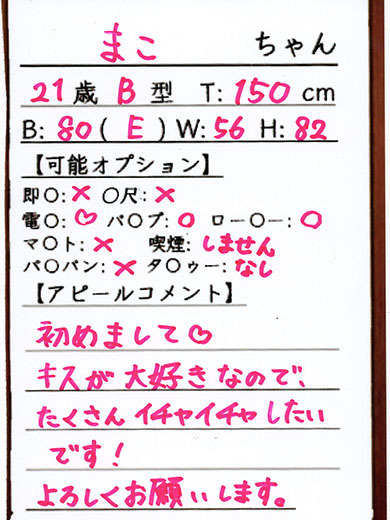 まこ ちゃん
21歳 B型 T:150cm
B:80(E)W:56 H:82
【可能オプション】
即〇:× 〇尺:×
電〇:♡ バ〇ブ:〇 ロー〇ー:〇
マ〇ト:× 喫煙:しません
パ〇パン:× タ〇ゥー:なし
【アピールコメント】
初めまして♡
キスが大好きなので、
たくさんイチャイチャしたい
です!
よろしくお願いします。